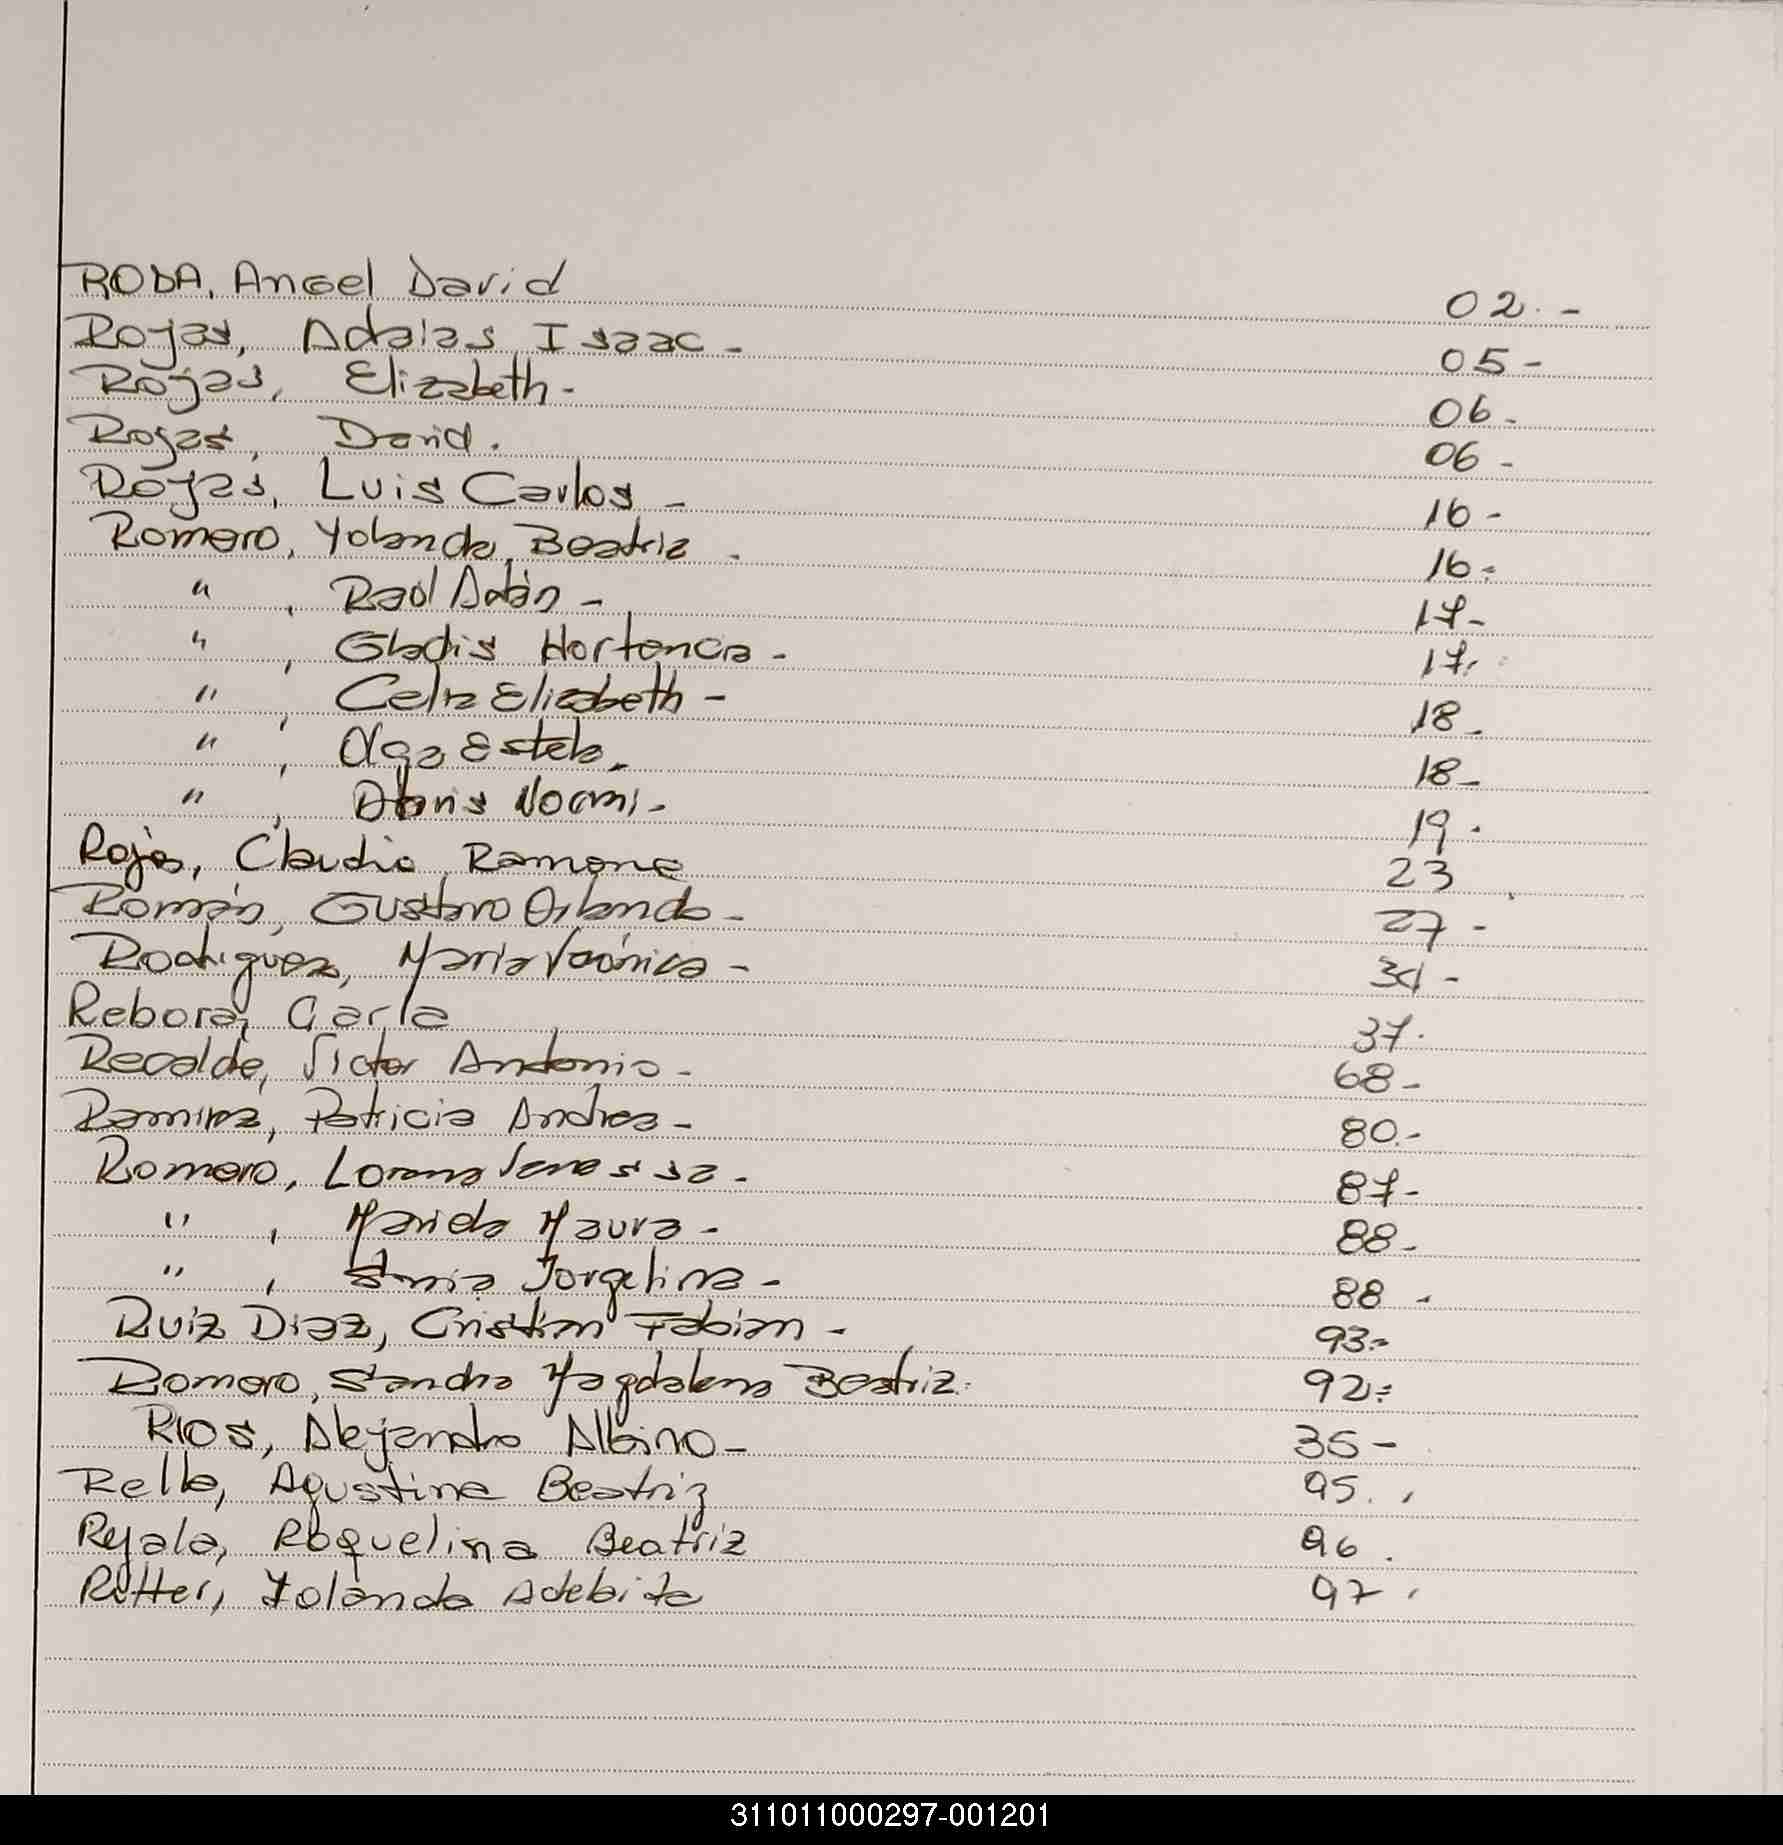 RODA, Angel David 02.-
Rojas, Adaias Isaac - 05-
Rojas, Elizabeth - 06-
Rojas, David. 06-
Rojas, Luis Carlos - 16-
Romero, Yolanda Beatriz - 16-
" , Raúl Adán - 17-
" , Gladis Hortencia - 17.
" , Celia Elizabeth - 18-
" , Olga Estela. 18-
" , Doris Noemi - 19.
Rojas, Claudia Ramona 23
Román, Gustavo Orlando - 27-
Rodriguez, Maria Verónica - 34-
Rebora, Carla 37.
Recalde, Victor Antonio - 68-
Ramirez, Patricia Andrea - 80.-
Romero, Lorena Vanessa - 87-
" , Mariela Maura - 88-
" , Sonia Jorgelina - 88-
Ruiz Diaz, Cristian Fabian - 93.-
Romero, Sandra Magdalena Beatriz. 92.-
Rios, Alejandro Albino - 35-
Rella, Agustina Beatriz 95.
Ryala, Roquelina Beatriz 96.
Ritter, Yolanda 97.
311011000297-001201